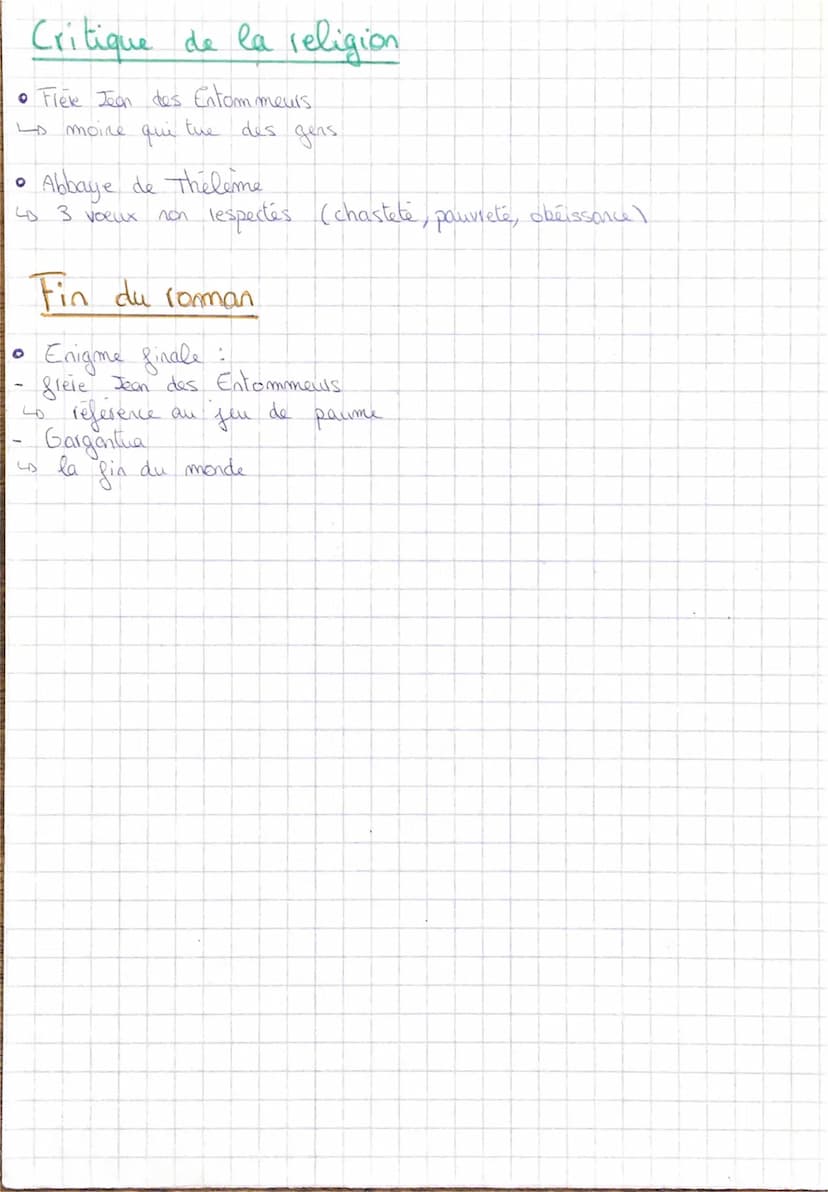 Critique de la religion
• Frère Jean des Entommeurs
↳ moine qui tue des gens
• Abbaye de Thélème
↳ 3 voeux non respectés (chasteté, pauvreté, obéissance)
Fin du roman
• Enigme finale :
- frère Jean des Entommeurs
↳ référence au jeu de paume
- Gargantua
↳ la fin du monde